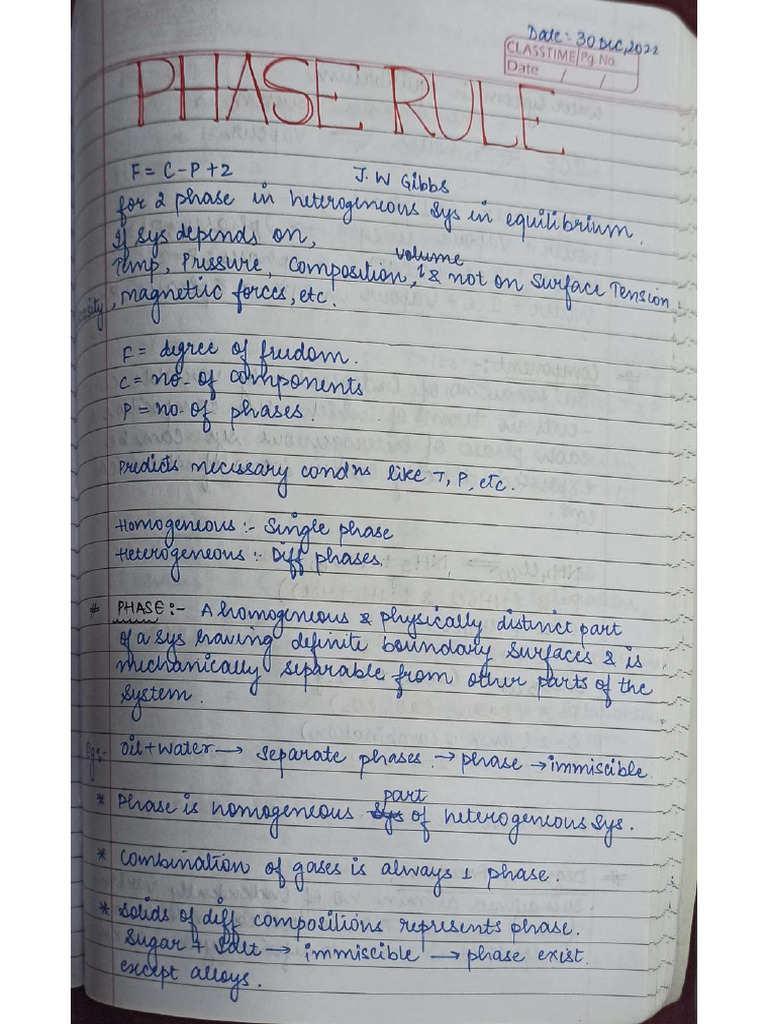 Date: 30 Dec, 2022
CLASSTIME Pg. No.
Date / /
PHASE RULE
F = C-P+2 J.W Gibbs
for 2 phase in heterogeneous sys in equilibrium.
If sys depends on,
volume
Temp, Pressure, Composition, & not on Surface Tension
, magnetic forces, etc.
F = degree of freedom.
C = no. of components
P = no. of phases.
Predicts necessary condns like T, P, etc.
Homogeneous :- Single phase
Heterogeneous :- Diff phases.
# PHASE :- A homogeneous & physically distinct part
of a sys having definite boundary surfaces & is
mechanically separable from other parts of the
system.
Eg:- Oil + Water → separate phases → phase → immiscible
part
* Phase is homogeneous sys of heterogeneous sys.
* Combination of gases is always 1 phase.
* Solids of diff compositions represents phase.
Sugar + Salt → immiscible → phase exist.
except alloys.